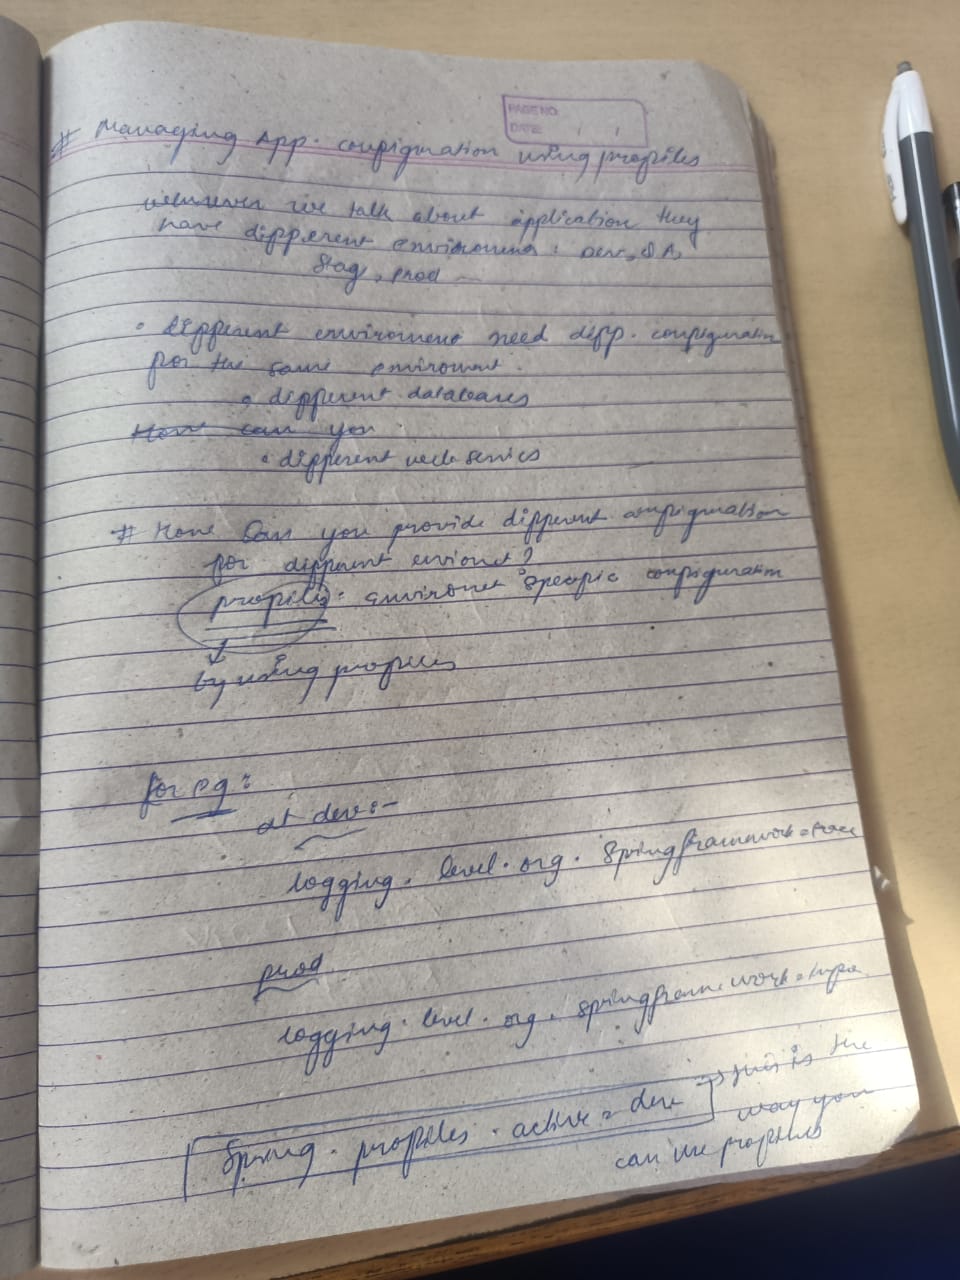 PAGE NO:
DATE: / /
# Managing App. configuration using profiles
whenever we talk about application they
have different enviroment: Dev, QA,
Stag, prod
• different enviroment need diff. configuration
for the same enviroment.
• different databases
How can you
• different web services
# How Can you provide different configuration
for different envionet?
profiles: environet specific configuration
by using profiles
for eg:
at dev:-
logging. level. org. springframework = trace
prod
logging. level. org. springframework = info
Spring. profiles. active = dev → this is the
way you
can use profiles